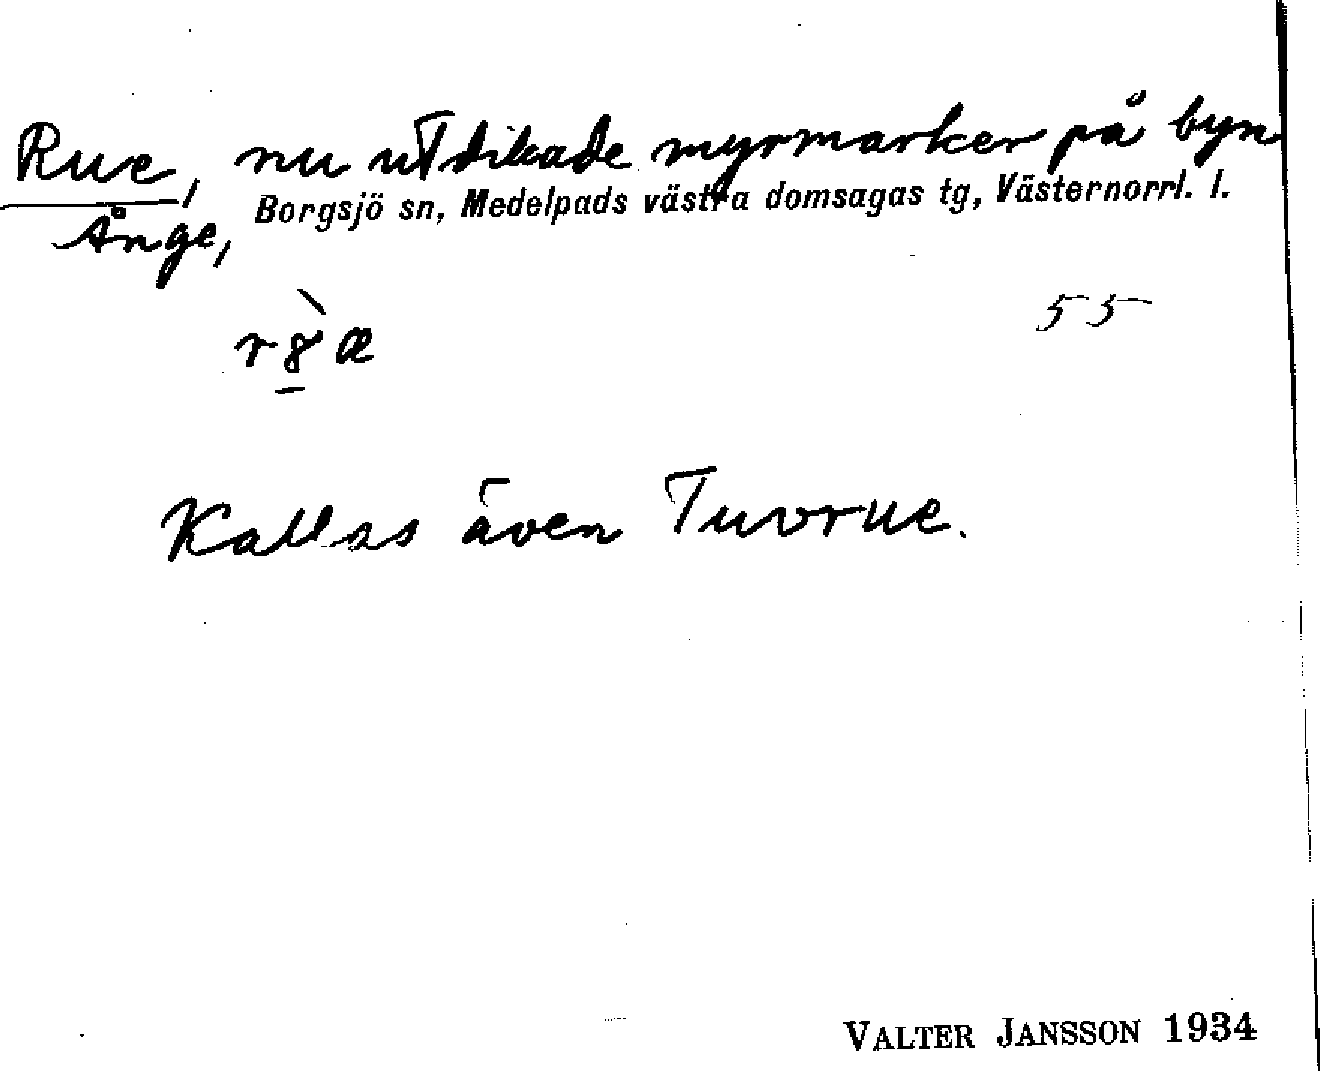 Rue, nu utdikade myrmarker på byn
Ånge, Borgsjö sn, Medelpads västra domsagas tg, Västernorrl. l.
55
Kallas även Tuvrue.
VALTER JANSSON 1934